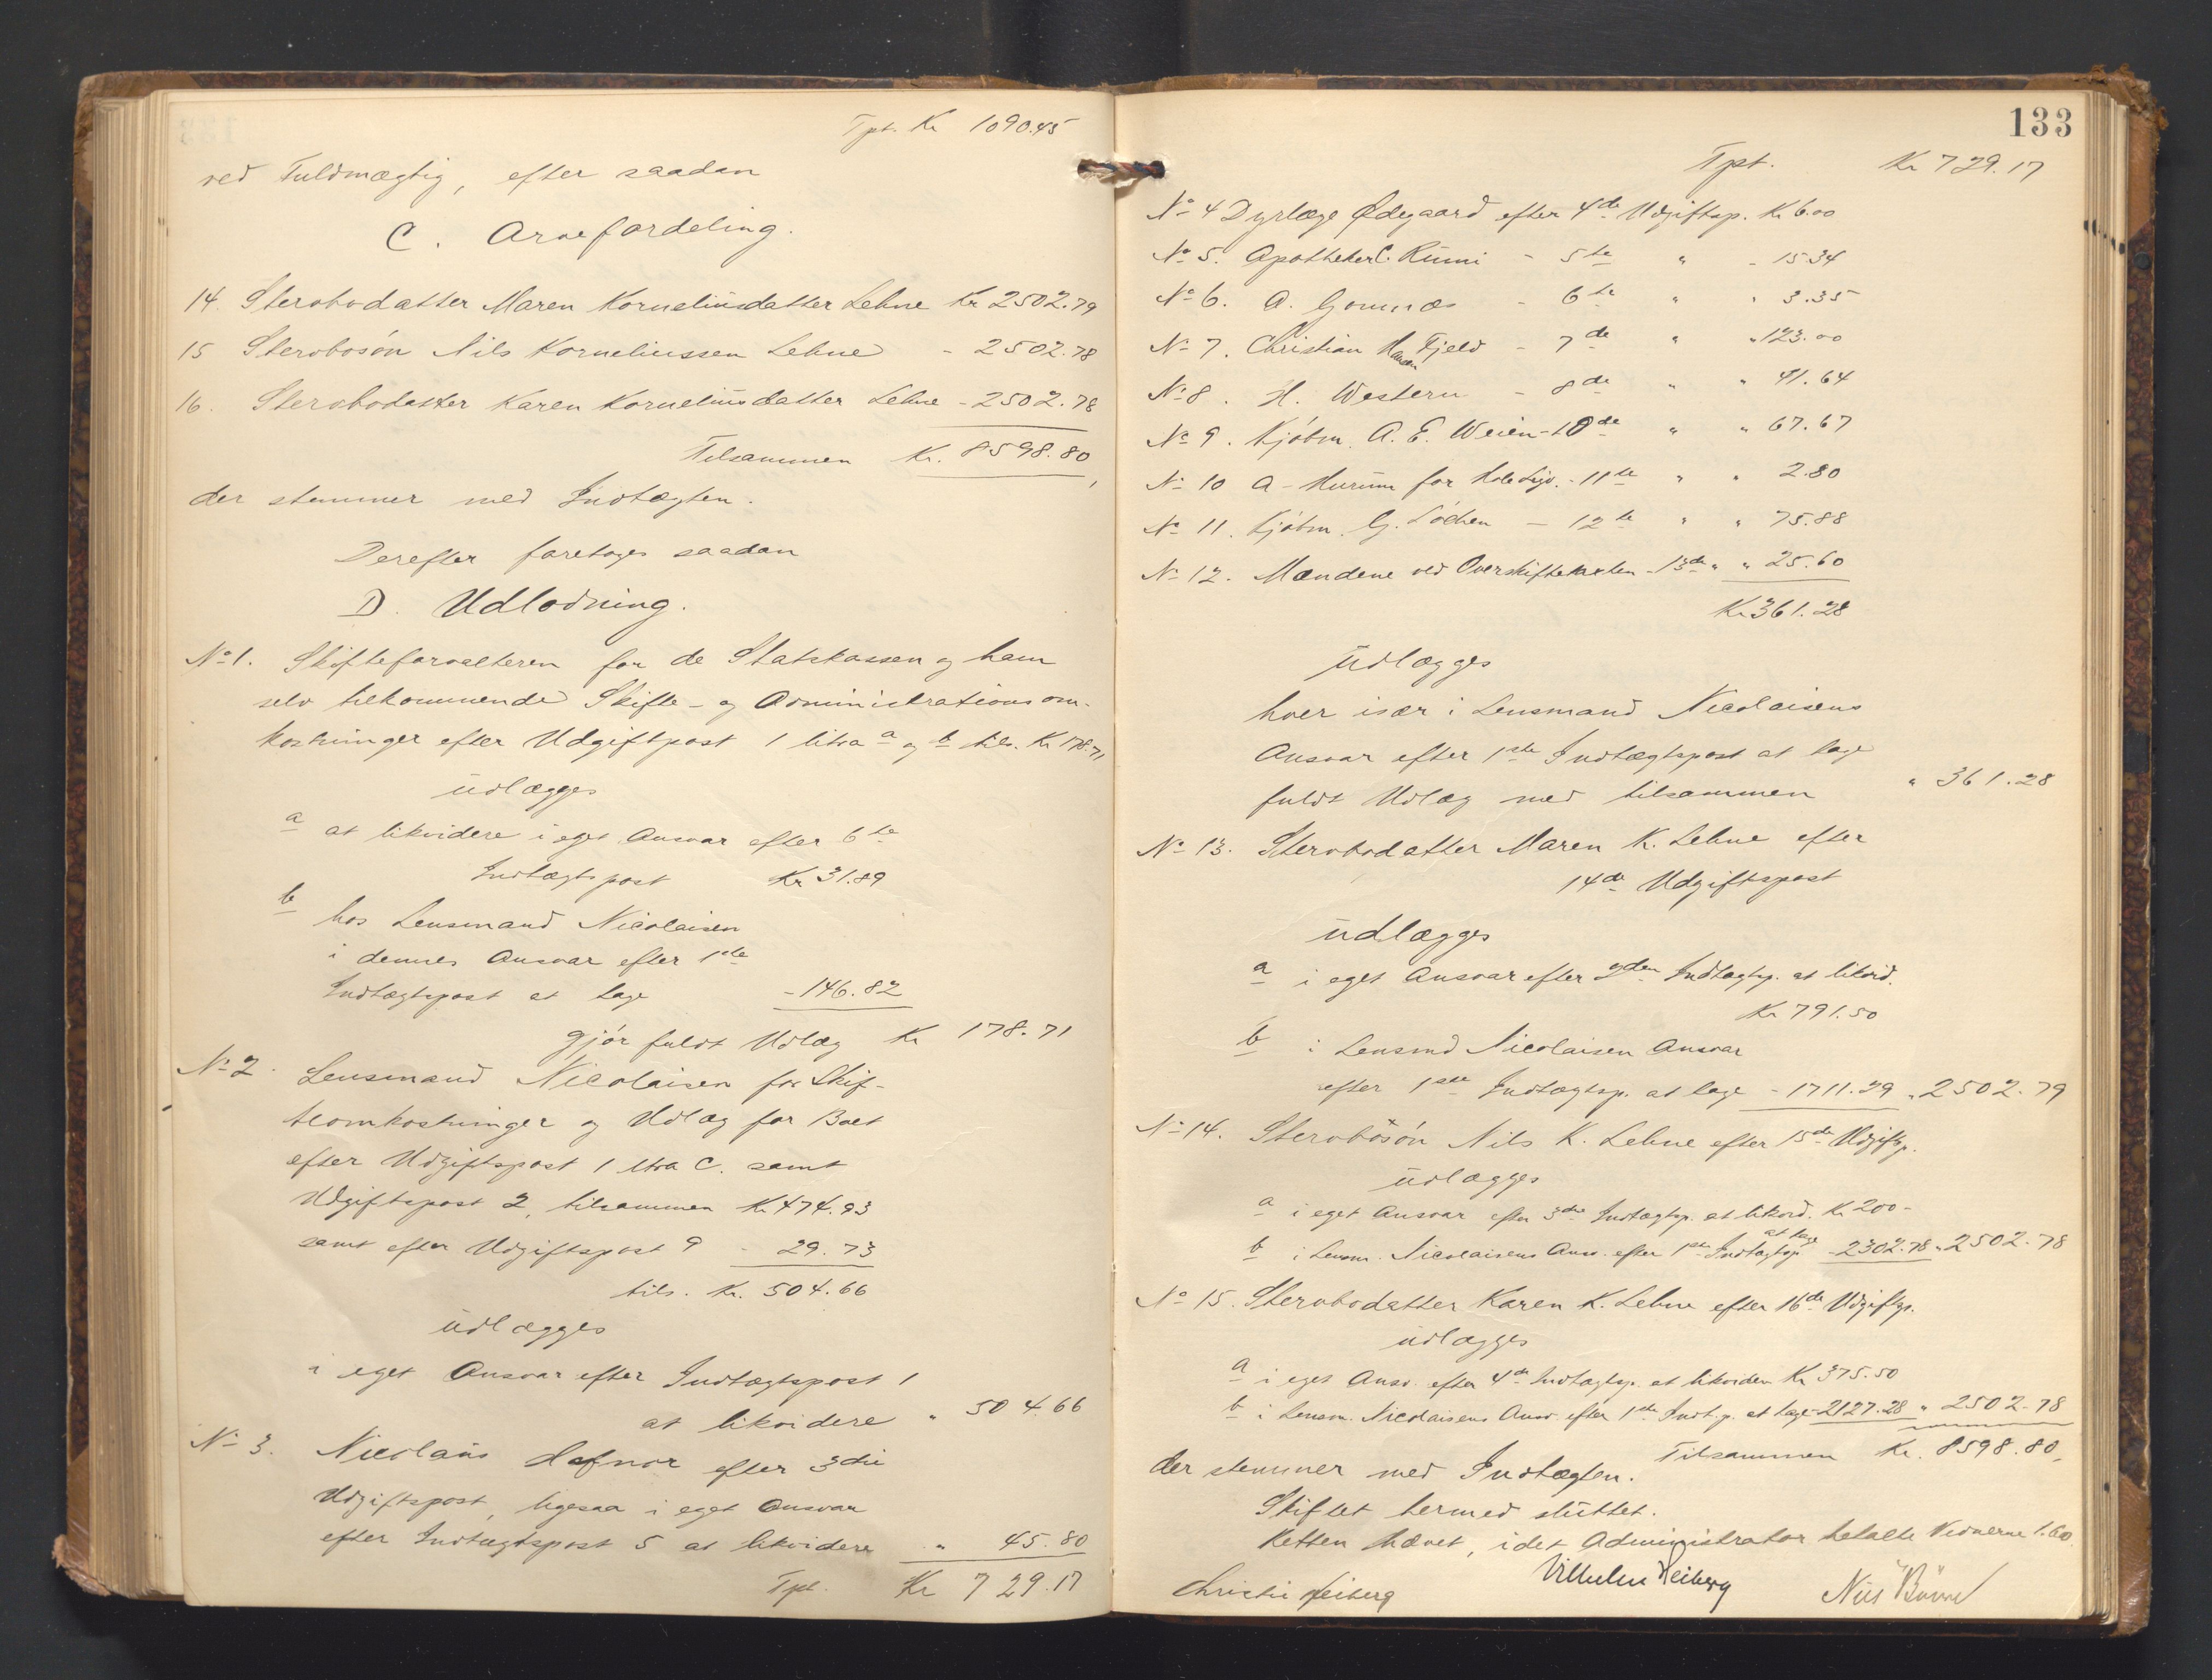 Tpt. Kr 1090.45
ved Fuldmægtig, efter saadan
C. Arvefordeling.
14. Stervbodatter Maren Korneliusdatter Lehne Kr 2502.79
15 Stervbosøn Nils Korneliussen Lehne - 2502.78
16. Stervbodatter Karen Korneliusdatter Lehne - 2502.78
Tilsammen Kr. 8598.80,
der stemmer med Indtægten.
Derefter foretoges saadan
D. Udlodning.
No 1. Skifteforvalteren for de Statskassen og ham
selv tilkommende Skifte- og Administrationsom-
kostninger efter Udgiftpost 1 litra a og b tils. Kr 178.71
udlægges
a at likvidere i eget Ansvar efter 6te
Indtægtspost Kr 31.89
b hos Lensmand Nicolaisen
i dennes Ansvar efter 1ste
Indtægtspost at tage - 146.82
gjør fuldt Udlæg Kr 178.71
No 2. Lensmand Nicolaisen for Skif-
teomkostninger og Udlæg for Boet
efter Udgiftspost 1 litra C. samt
Udgiftspost 2, tilsammen Kr 474.93
samt efter Udgiftspost 9 - 29.73
tils. Kr. 504.66
udlægges
i eget Ansvar efter Indtægtspost 1
at likvidere " 504.66
No 3. Nicolaus Hafnor efter 3die
Udgiftspost, ligesaa i eget Ansvar
efter Indtægtspost 5 at likvidere " 45.80
Tpt. Kr 729.17
133
Tpt. Kr 729.17
No 4 Dyrlæge Ødegaard efter 4de Udgiftsp. Kr 6.00
No 5. Apotheker C. - 5te " - 15.34
No 6. A. Gomnæs - 6te " " 3.35
No 7. Christian Hansen Fjeld - 7de " " 123.00
No 8. H. Western - 8de " " 41.64
No 9. Kjøbm. A. E. Weien - 10de " " 67.67
No 10 A. Hurum for Hole - 11te " " 2.80
No 11. Kjøbm. G. Løchen - 12te " " 75.88
No 12. Mændene ved Overskiftetaxten - 13de " " 25.60
Kr 361.28
udlægges
hver især i Lensmand Nicolaisens
Ansvar efter 1ste Indtægtspost at tage
fuldt Udlæg med tilsammen " 361.28
No 13. Stervbodatter Maren K. Lehne efter
14de Udgiftspost
udlægges
a i eget Ansvar efter 2den Indtægtsp. at likvid.
Kr 791.50
b i Lensmd Nicolaisen Ansvar
efter 1ste Indtægtsp. at tage - 1711.29 " 2502.79
No 14. Stervbosøn Nils K. Lehne efter 15de Udgiftsp.
udlægges
a i eget Ansvar efter 3die Indtægtsp. at likvid. Kr 200 -
b i Lensm. Nicolaisens Ansv. efter 1ste Indtægtsp. at tage - 2302.78 " 2502.78
No 15. Stervbodatter Karen K. Lehne efter 16de Udgiftsp.
udlægges
a i eget Ansv. efter 4de Indtægtsp. at likvidere Kr 375.50
b i Lensm. Nicolaisens Ansv. efter 1ste Indt.p. at tage - 2127.28 " 2502.78
Tilsammen Kr. 8598.80,
der stemmer med Indtægten.
Skiftet hermed sluttet.
Retten hævet, idet Administrator betalte Vidnerne 1.60.
Christie Heiberg Vilhelm Heiberg Nils